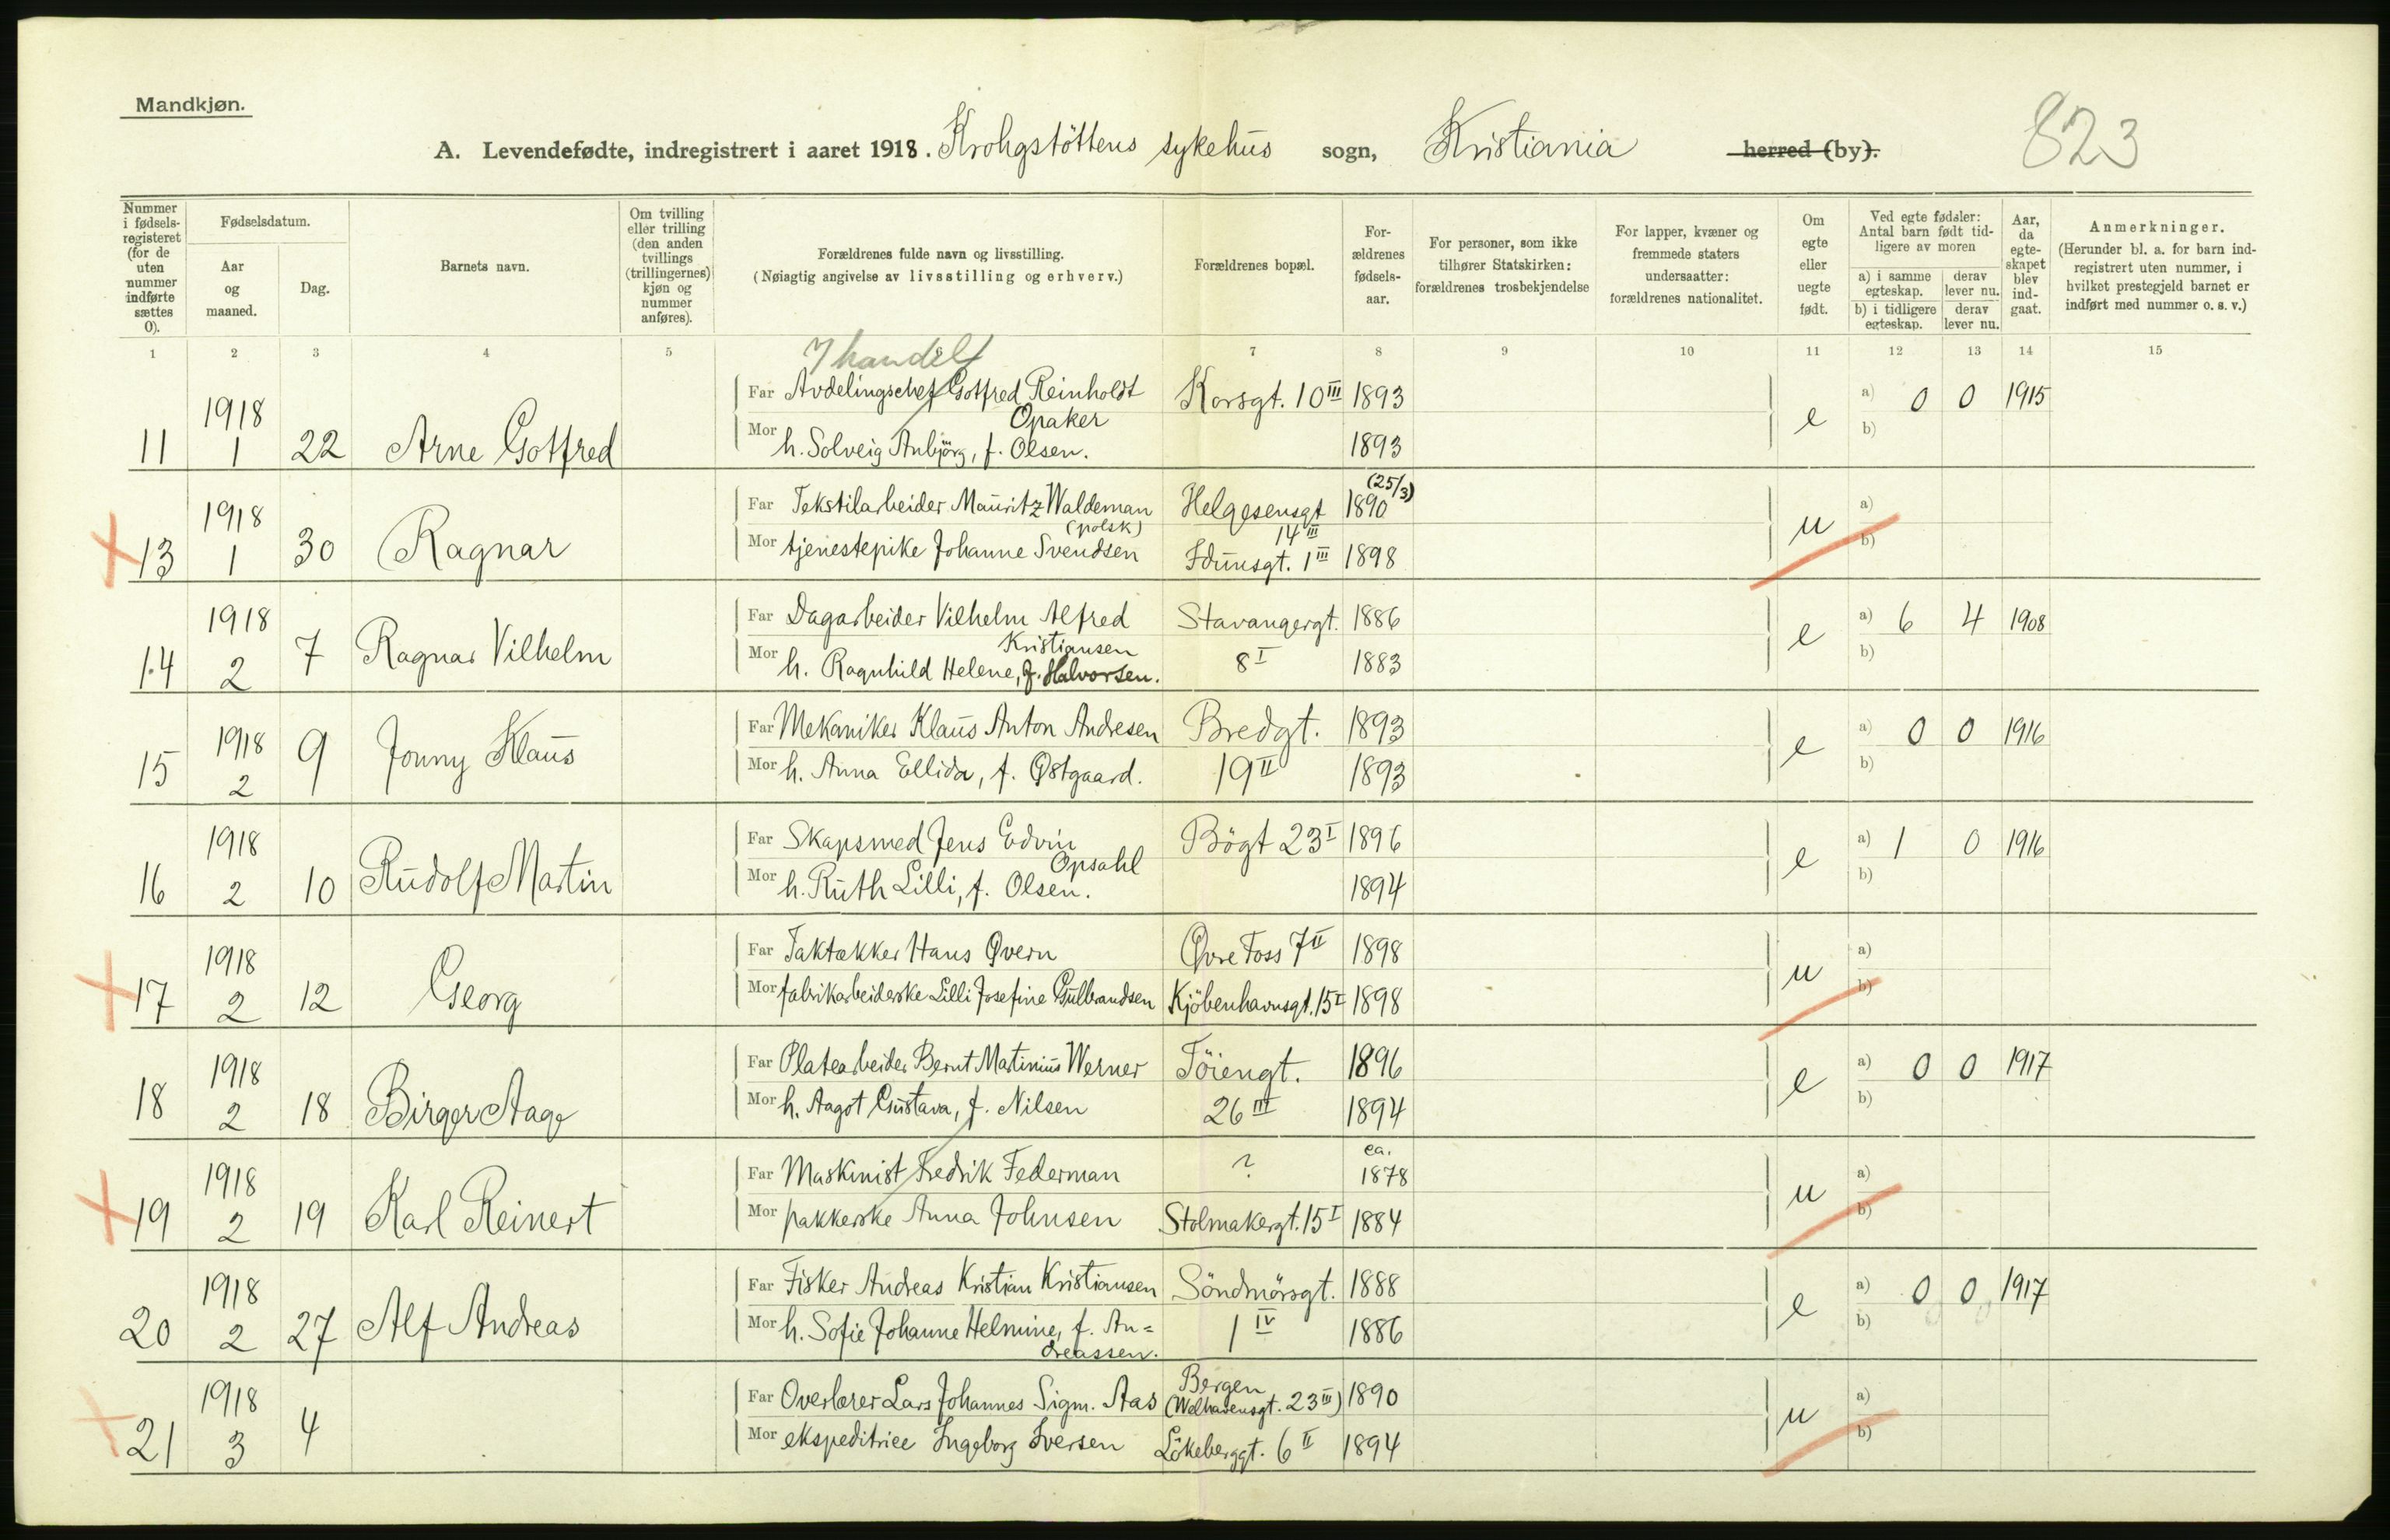 Mandkjøn.
A. Levendefødte, indregistrert i aaret 1918. Krohgstöttens sykehus sogn, Kristiania herred (by).
823
Nummer i fødselsregisteret (for de uten nummer indførte sættes 0).
Fødselsdatum.
Aar og maaned.
Dag.
Barnets navn.
Om tvilling eller trilling (den anden tvillings (trillingernes) kjøn og nummer anføres).
Forældrenes fulde navn og livsstilling.
(Nøiagtig angivelse av livsstilling og erhverv.)
Forældrenes bopæl.
Forældrenes fødselsaar.
For personer, som ikke tilhører Statskirken: forældrenes trosbekjendelse
For lapper, kvæner og fremmede staters undersaatter: forældrenes nationalitet.
Om egte eller uegte født.
Ved egte fødsler: Antal barn født tidligere av moren
a) i samme egteskap. derav lever nu.
b) i tidligere egteskap. derav lever nu.
Aar, da egteskapet blev indgaat.
Anmerkninger.
(Herunder bl. a. for barn indregistrert uten nummer, i hvilket prestegjeld barnet er indført med nummer o. s. v.)
1 2 3 4 5 6 7 8 9 10 11 12 13 14 15
7 handel
11 1918 1 22 Arne Gotfred
Far Avdelingschef Gotfred Reinholdt Opaker Korsgt. 10 III 1893 e a) 0 0 1915
Mor h. Solveig Anbjörg, f. Olsen. 1893 b)
13 1918 1 30 Ragnar
Far Tekstilarbeider Mauritz Waldeman (polsk) Helgesensgt 14 III (25/3) 1890 u a)
Mor tjenestepike Johanne Svendsen Idunsgt. 1 III 1898 b)
14 1918 2 7 Ragnar Vilhelm
Far Dagarbeider Vilhelm Alfred Kristiansen Stavangergt. 1886 e a) 6 4 1908
Mor h. Ragnhild Helene, f. Halvorsen. 8 I 1883 b)
15 1918 2 9 Jonny Klaus
Far Mekaniker Klaus Anton Andresen Bredgt. 1893 e a) 0 0 1916
Mor h. Anna Ellida, f. Østgaard. 19 II 1893 b)
16 1918 2 10 Rudolf Martin
Far Skapsmed Jens Edvin Opsahl Bögt 23 I 1896 e a) 1 0 1916
Mor h. Ruth Lilli, f. Olsen. 1894 b)
17 1918 2 12 Georg
Far Taktækker Hans Øvern Øvre Foss 7 II 1898 u a)
Mor fabrikarbeiderske Lilli Josefine Gulbrandsen Kjöbenhavnsgt. 15 I 1898 b)
18 1918 2 18 Birger Aage
Far Platearbeider Bernt Martinius Werner Töiengt. 1896 e a) 0 0 1917
Mor h. Aagot Gustava, f. Nilsen 26 III 1894 b)
19 1918 2 19 Karl Reinert
Far Maskinist Fredrik Federman ? ca. 1878 u a)
Mor pakkerske Anna Johnsen Stolmakergt. 15 I 1884 b)
20 1918 2 27 Alf Andreas
Far Fisker Andreas Kristian Kristiansen Söndmörsgt. 1888 e a) 0 0 1917
Mor h. Sofie Johanne Helmine, f. An=
dreassen. 1 IV 1886 b)
21 1918 3 4
Far Overlærer Lars Johannes Sigm. Aas Bergen (Welhavensgt. 23 III) 1890 u a)
Mor ekspeditrice Ingeborg Iversen Lökeberggt. 6 II 1894 b)